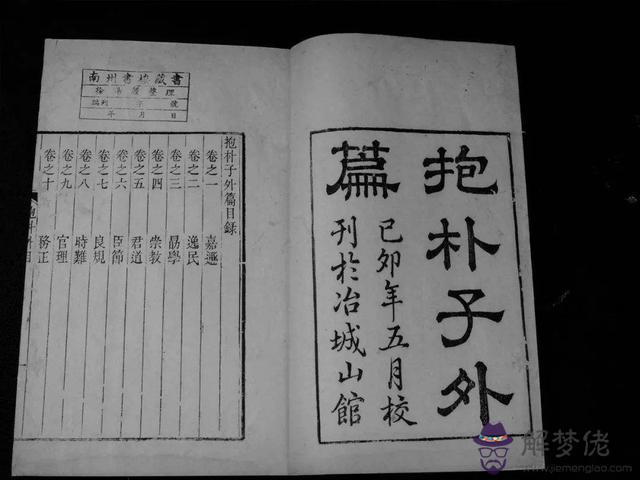 抱朴子外
篇
己卯年五月校
刊於冶城山館
南州書樓藏書
整理
編列 字 號
年 月 日
抱朴子外篇目錄
卷之一 嘉遯
卷之二 逸民
卷之三 勗學
卷之四 崇教
卷之五 君道
卷之六 臣節
卷之七 良規
卷之八 時難
卷之九 官理
卷之十 務正
解梦佬
https://www.jiemenglao.com/